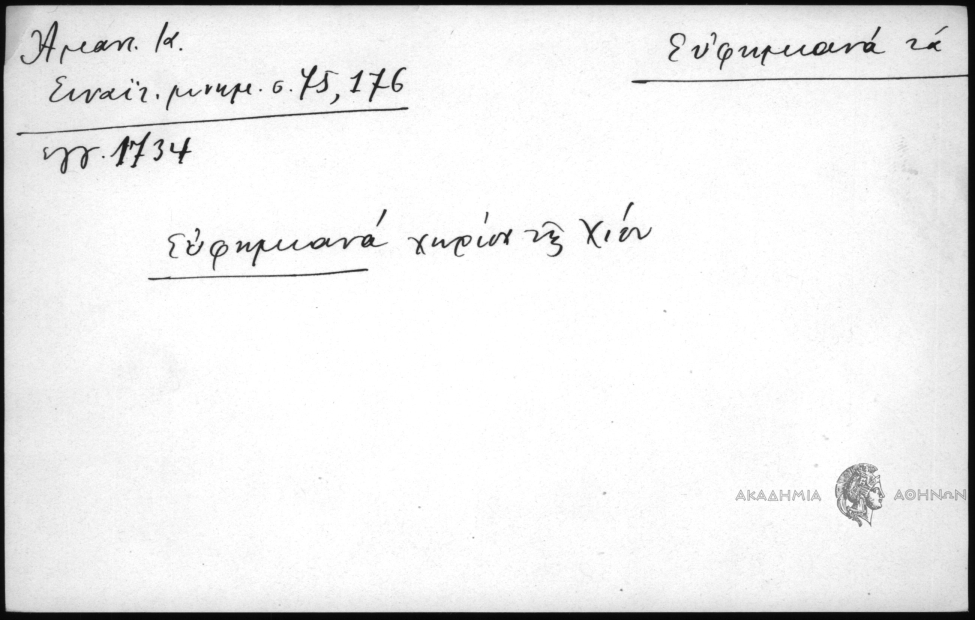 Ἄμαντ. Κ.
Σιναϊτ. μνημ. σ. 75, 176
ἐγγ. 1734
Εὐφημιανά τά
Εὐφημιανά χωρίον τῆς Χίου
ΑΚΑΔΗΜΙΑ ΑΘΗΝΩΝ